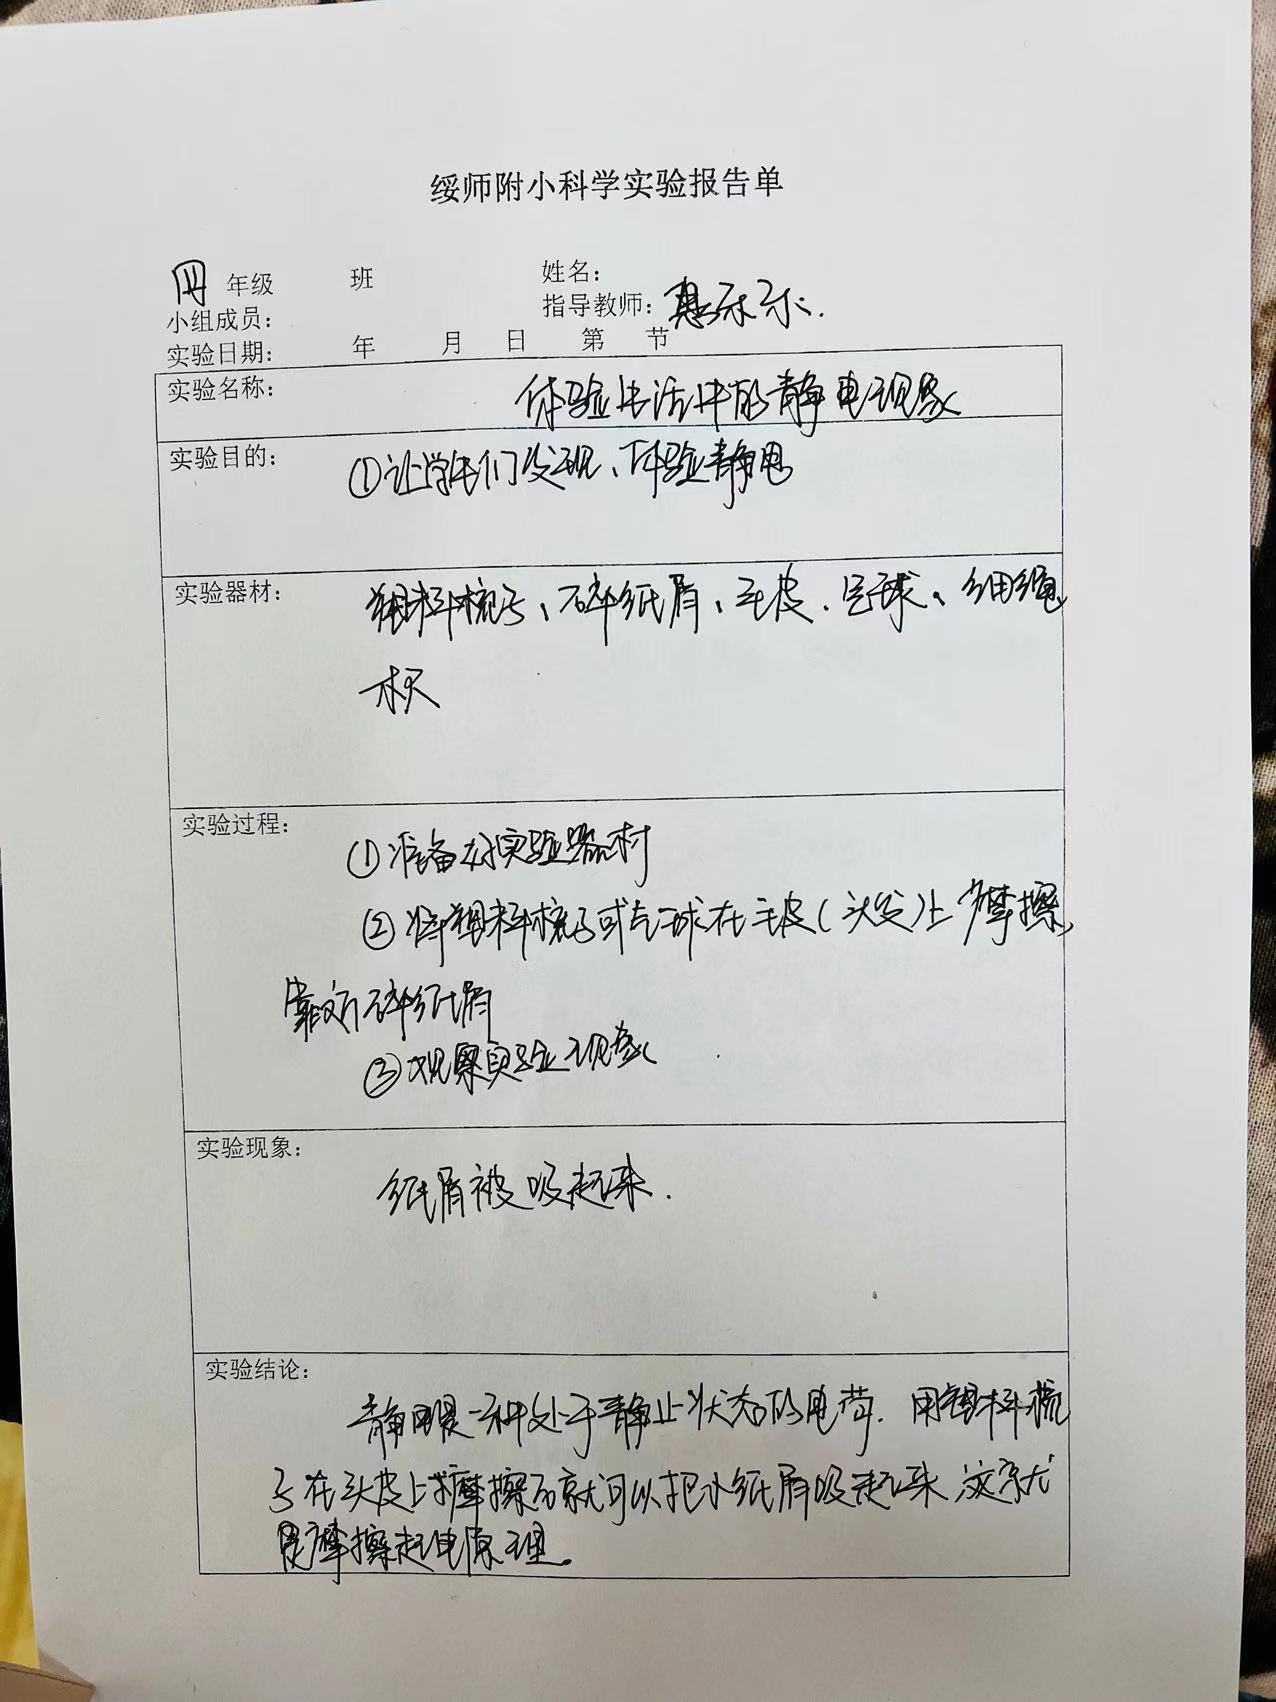 绥师附小科学实验报告单
四年级 班 姓名：
小组成员： 指导教师：惠乐乐.
实验日期： 年 月 日 第 节
实验名称： 体验生活中的静电现象
实验目的： ①让学生们发现、体验静电
实验器材： 塑料梳子、碎纸屑、毛皮、气球、细绳、
实验过程：
①准备好实验器材
②将塑料梳子或气球在毛皮（头发）上摩擦，
靠近碎纸屑
③观察实验现象
实验现象：
纸屑被吸起来.
实验结论：
静电是一种处于静止状态的电荷. 用塑料梳
子在头皮上摩擦后就可以把小纸屑吸起来 这就
是摩擦起电原理。